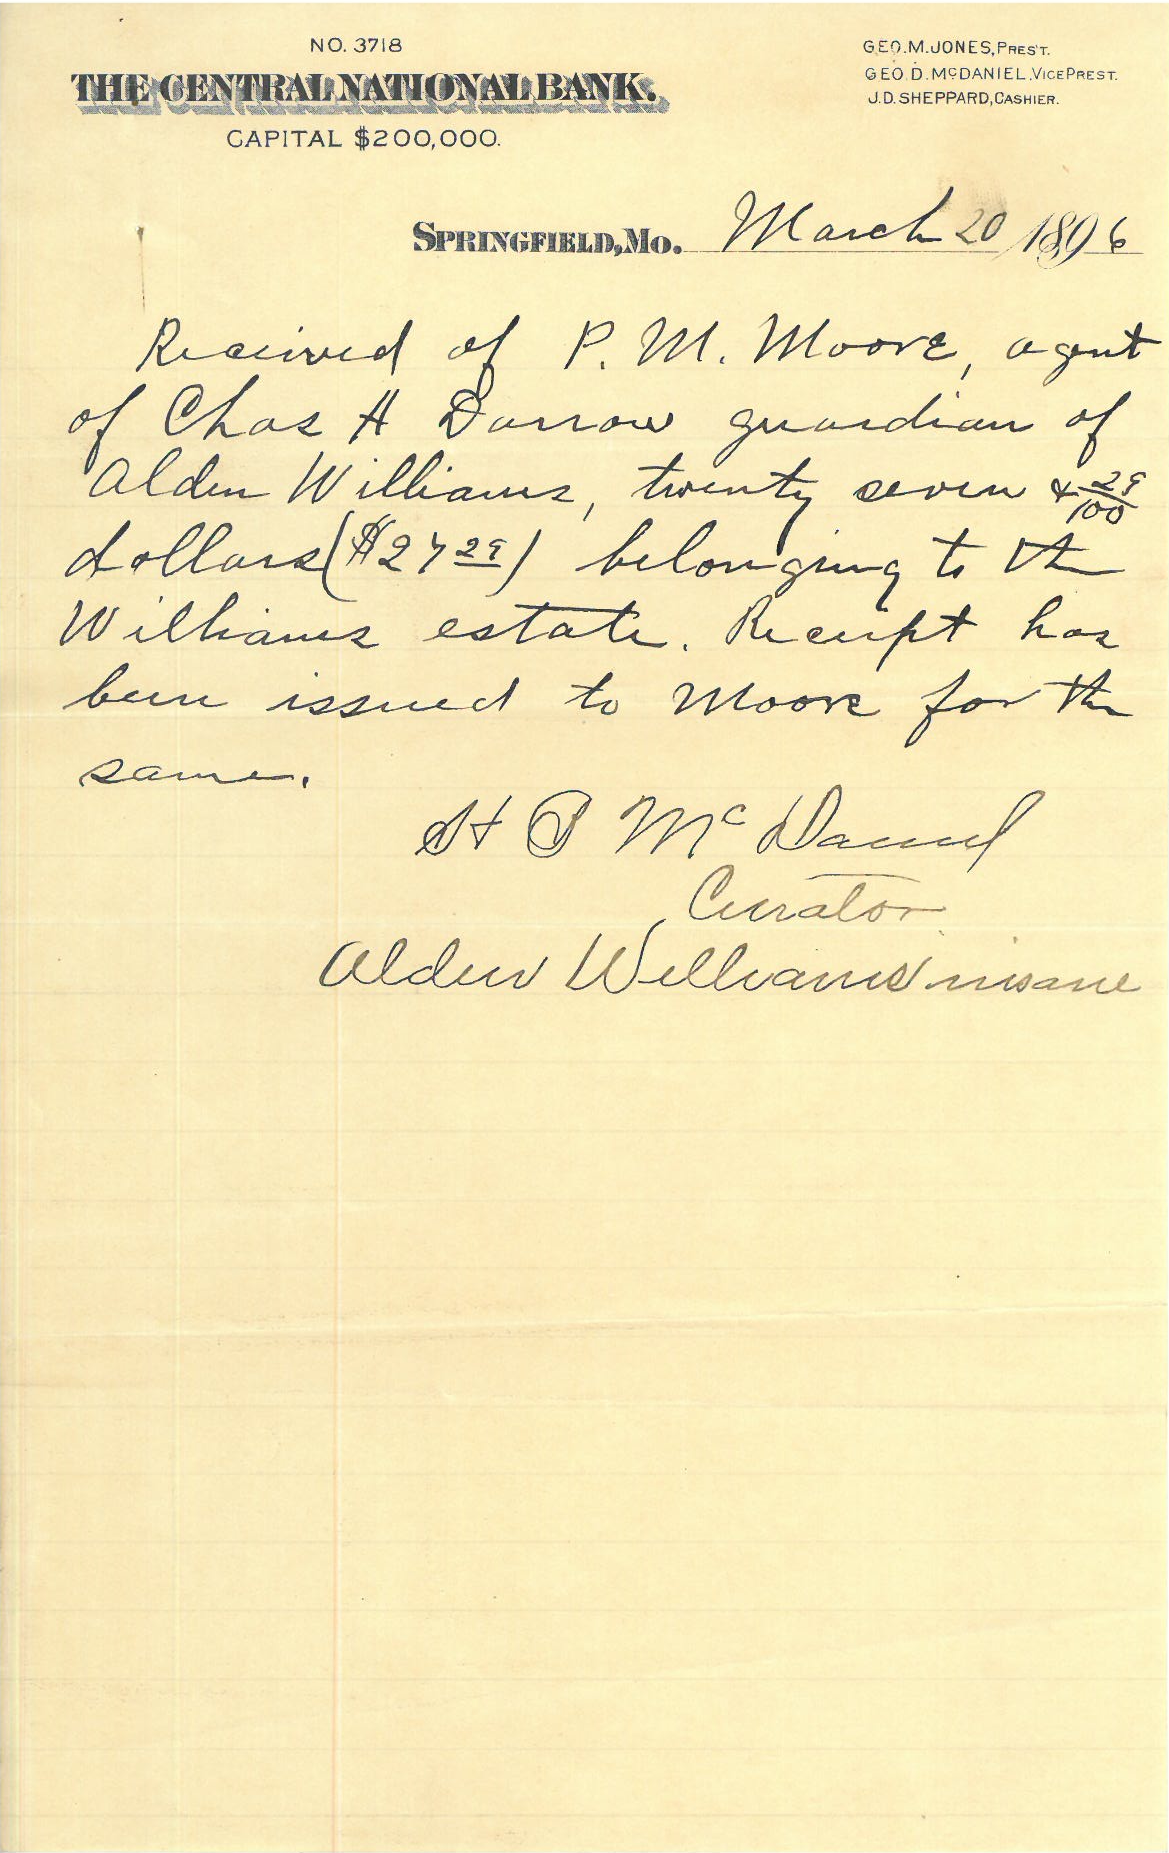 NO. 3718
THE CENTRAL NATIONAL BANK.
CAPITAL $200,000.
GEO. M. JONES, PRES'T.
GEO. D. McDANIEL, VICE PREST.
J. D. SHEPPARD, CASHIER.
SPRINGFIELD, MO. March 20 1896
Received of P. M. Moore, agent
of Chas H Darrow guardian of
Alden Williams, twenty seven & 29/100
dollars ($27 29) belonging to the
Williams estate. Receipt has
been issued to Moore for the
same.
H B McDaniel
Curator
Alden Williams insane